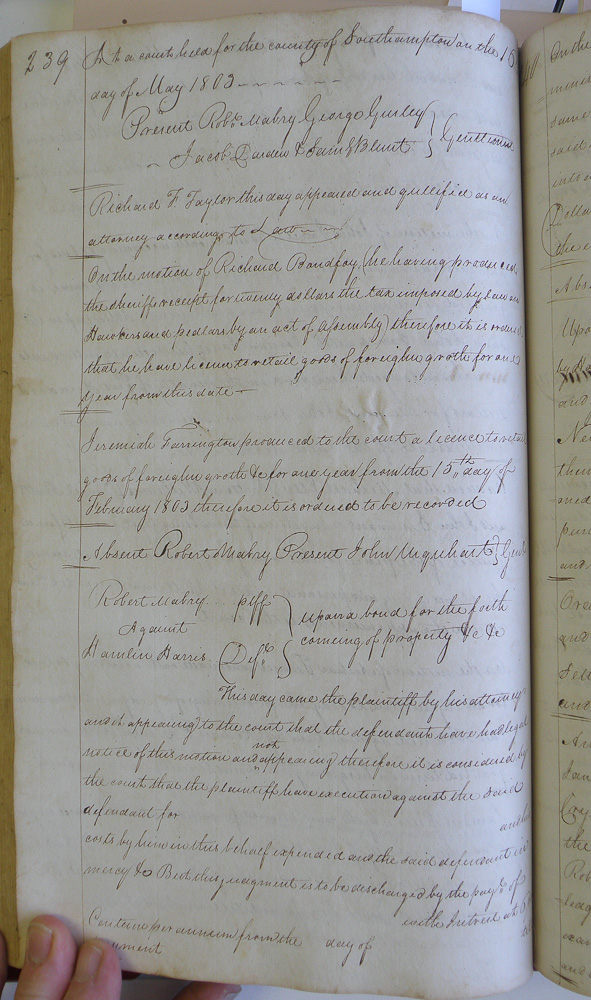 239
At a court held for the county of Southampton on the 16
day of May 1803
Present Robt. Mabry George Gurley
Jacob Darden & Saml Blunt } Gentlemen
Richard F. Taylor this day appeared and qullified as an
attorney according to Law
On the motion of Richard (he having produced
the sheriffs receipt for twenty dollars the tax imposed by law on
Hawkers and pedlars by an act of assembly) therefore it is ordered
that he have licence to retail goods of foreighn groth for one
year from this date
Jeremiah Farrington produced to the court a licence to retail
goods of foreighn groth &c for one year from the 15th day of
February 1803 therefore it is ordered to be recorded
Absent Robert Mabry Present John Urquhart } Gent
Robert Mabry plff
Against
Hamlin Harris Deft.
upon a bond for the forth
coming of property &c &c
This day came the plaintiff by his attorney
and it appearing to the court that the defendants have had legal
notice of this motion and not appearing therefore it is considered by
the court that the plaintiff have execution against the said
defendant for and his
costs by him in this behalf expended and the said defendant in
mercy &c But this judgment is to be discharged by the paymt. of
with Intrest at 6
Centum per annum from the day of